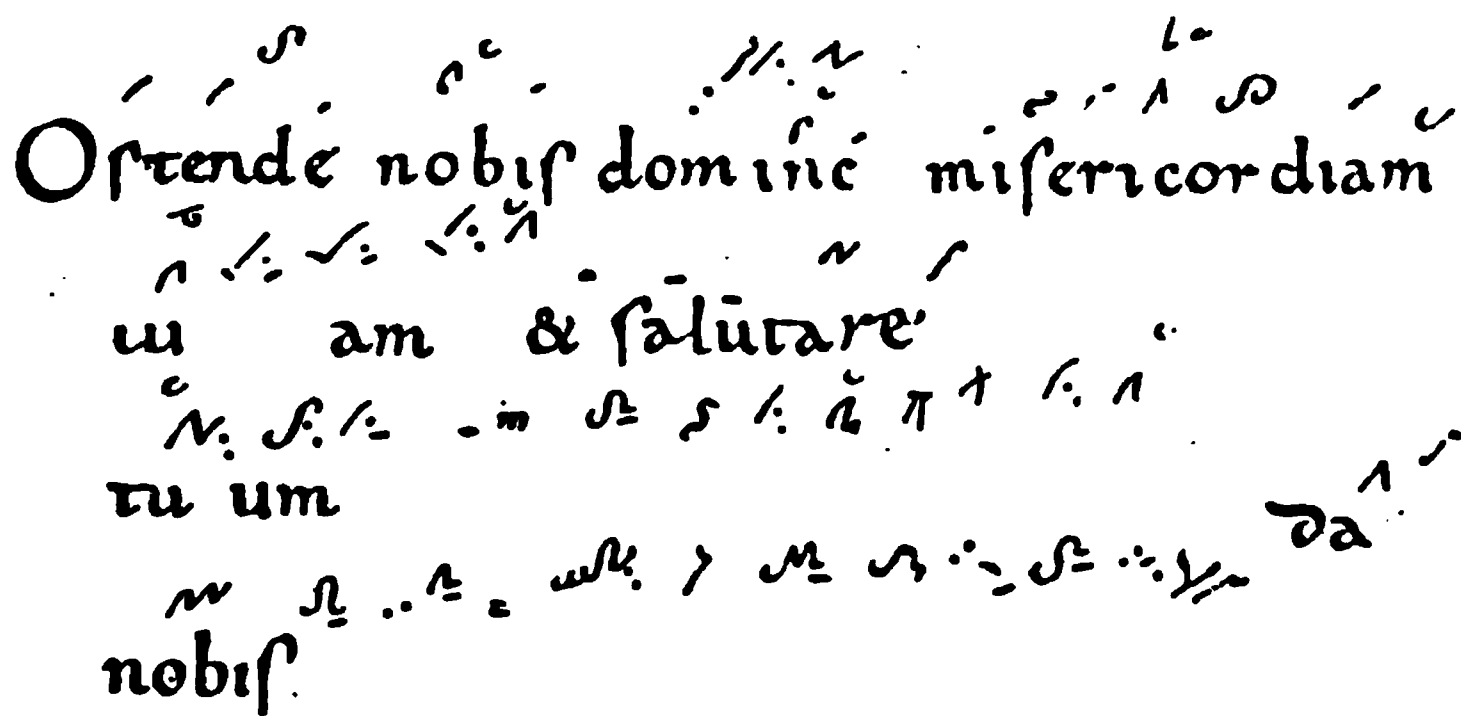 Oſtende nobiſ domine miſericordiam
tu am & ſalutare
tu um
da
nobiſ